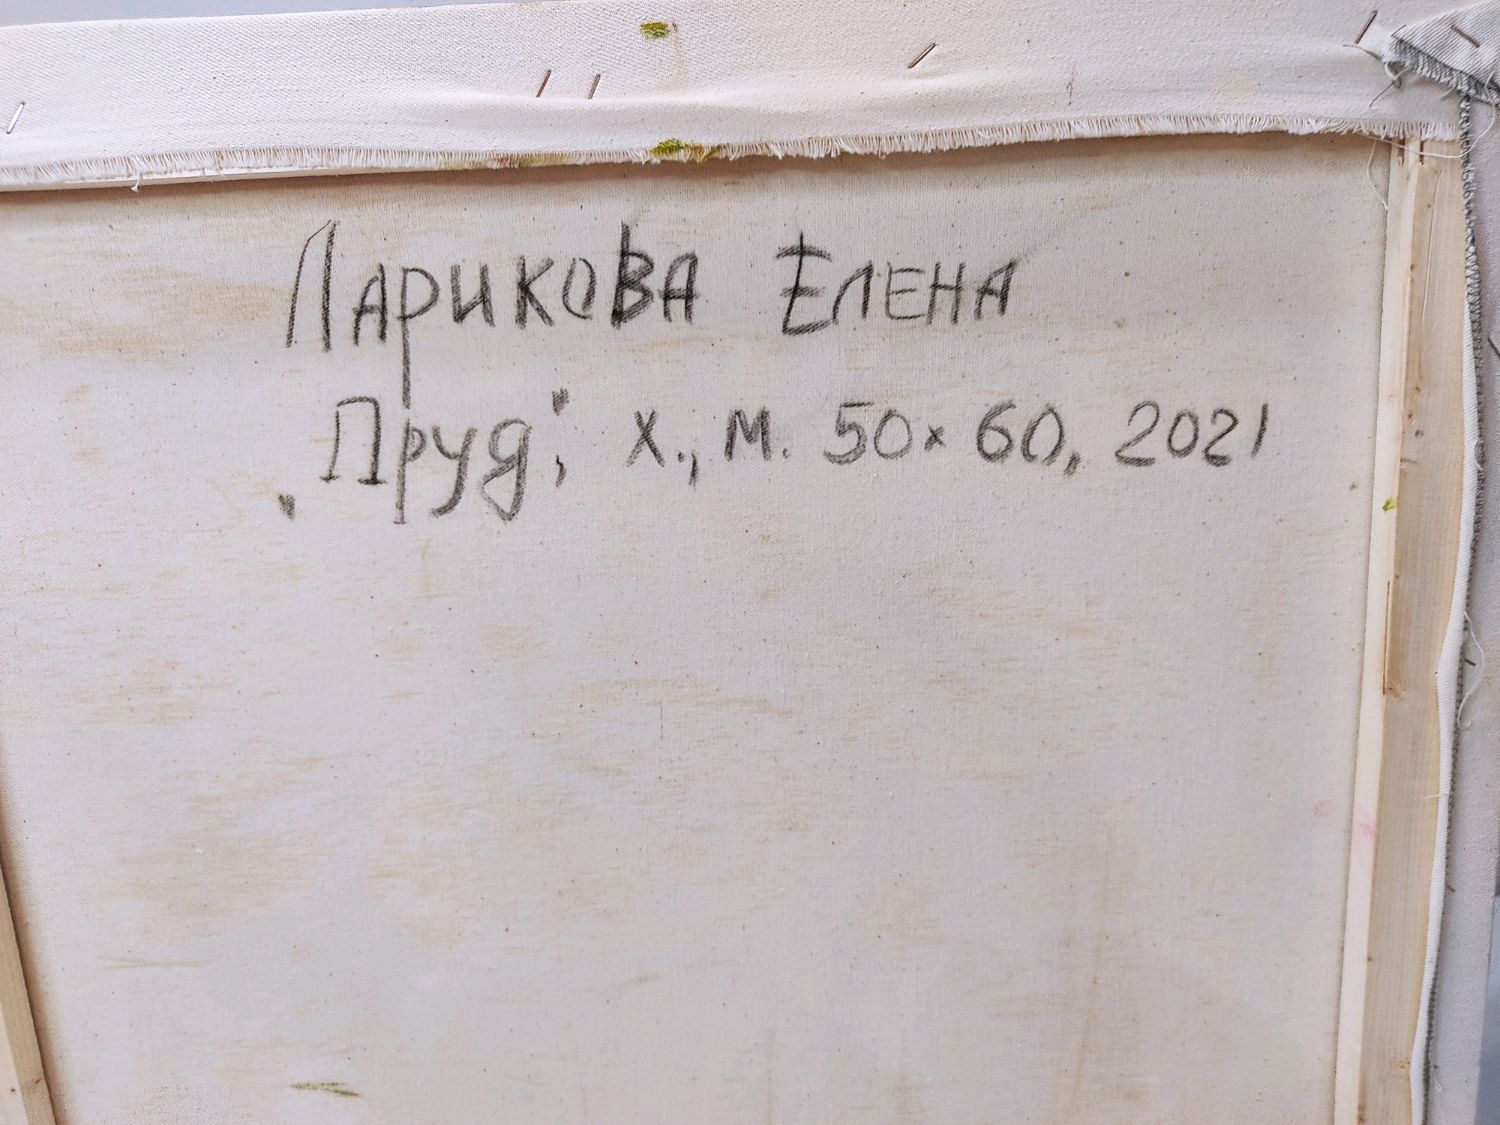 Ларикова Елена
„Пруд", х., м. 50×60, 2021